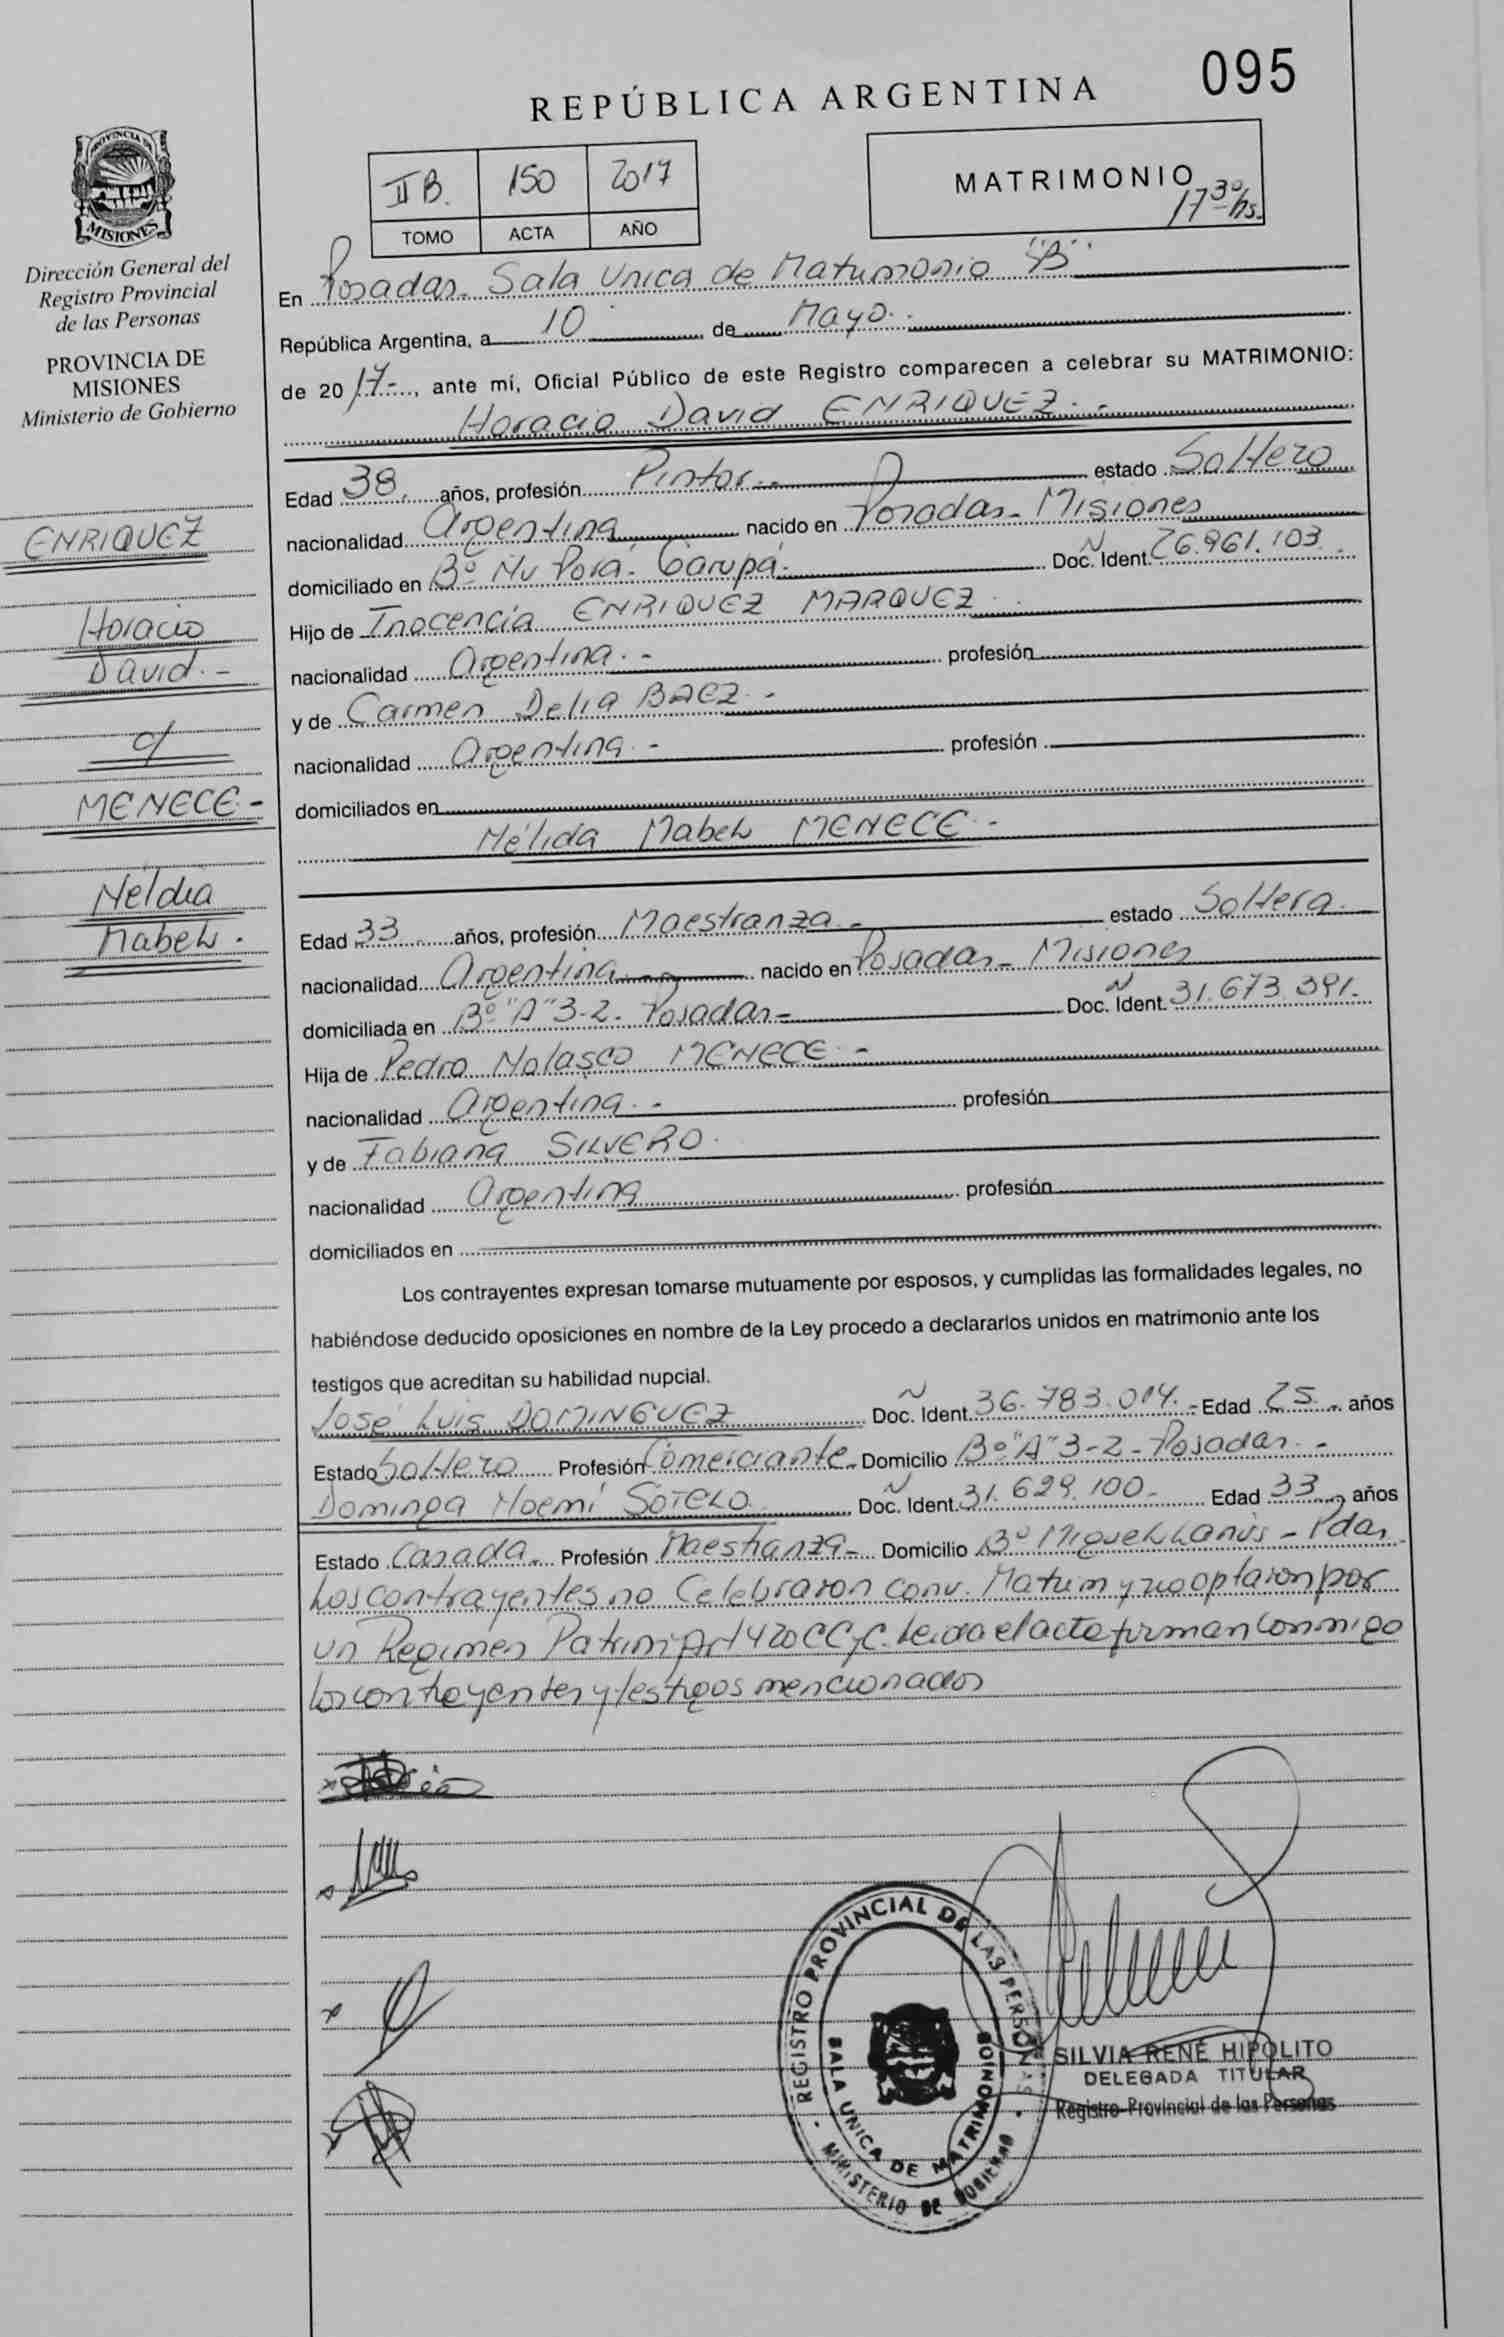 095
REPÚBLICA ARGENTINA
PROVINCIA DE
MISIONES
Dirección General del
Registro Provincial
de las Personas
PROVINCIA DE
MISIONES
Ministerio de Gobierno
II B. 150 2017
TOMO ACTA AÑO
MATRIMONIO
17 30 hs.
En Posadas. Sala Unica de Matrimonio "B"
República Argentina, a 10 de Mayo.
de 20 17.-, ante mí, Oficial Público de este Registro comparecen a celebrar su MATRIMONIO:
Horacio David ENRIQUEZ.-
Edad 38. años, profesión Pintor.- estado Soltero
nacionalidad Argentina nacido en Posadas- Misiones
domiciliado en Bº Ñu Porá. Garupá. Doc. Ident. 26.961.103.
Hijo de Inocencia ENRIQUEZ MARQUEZ.
nacionalidad Argentina.- profesión
y de Carmen Delia BAEZ.-
nacionalidad Argentina.- profesión
domiciliados en
Nélida Mabel MENECE-
Edad 33 años, profesión Maestranza- estado Soltera.
nacionalidad Argentina nacido en Posadas- Misiones
domiciliada en Bº "A" 3-2. Posadas- Doc. Ident. 31.673.391.
Hija de Pedro Nolasco MENECE-
nacionalidad Argentina.- profesión
y de Fabiana SILVERO.
nacionalidad Argentina profesión
domiciliados en
Los contrayentes expresan tomarse mutuamente por esposos, y cumplidas las formalidades legales, no
habiéndose deducido oposiciones en nombre de la Ley procedo a declararlos unidos en matrimonio ante los
testigos que acreditan su habilidad nupcial.
José Luis DOMINGUEZ Doc. Ident. 36.783.014.- Edad 25 años
Estado Soltero Profesión Comerciante- Domicilio Bº "A" 3-2- Posadas.-
Dominga Noemí SOTELO Doc. Ident. 31.629.100- Edad 33 años
Estado Casada Profesión Maestranza- Domicilio Bº Miguel Lanús- Pdas
Los contrayentes no Celebraron conv. Matrim y no optaron por
un Regimen Patrim Art 420 CC y C. Leida el acta firman conmigo
los contrayentes y testigos mencionados
ENRIQUEZ
Horacio
David.-
c/
MENECE-
Neldia
Mabel.
REGISTRO PROVINCIAL DE LAS PERSONAS
SALA UNICA DE MATRIMONIOS
MINISTERIO DE GOBIERNO
SILVIA RENÉ HIPOLITO
DELEGADA TITULAR
Registro Provincial de las Personas